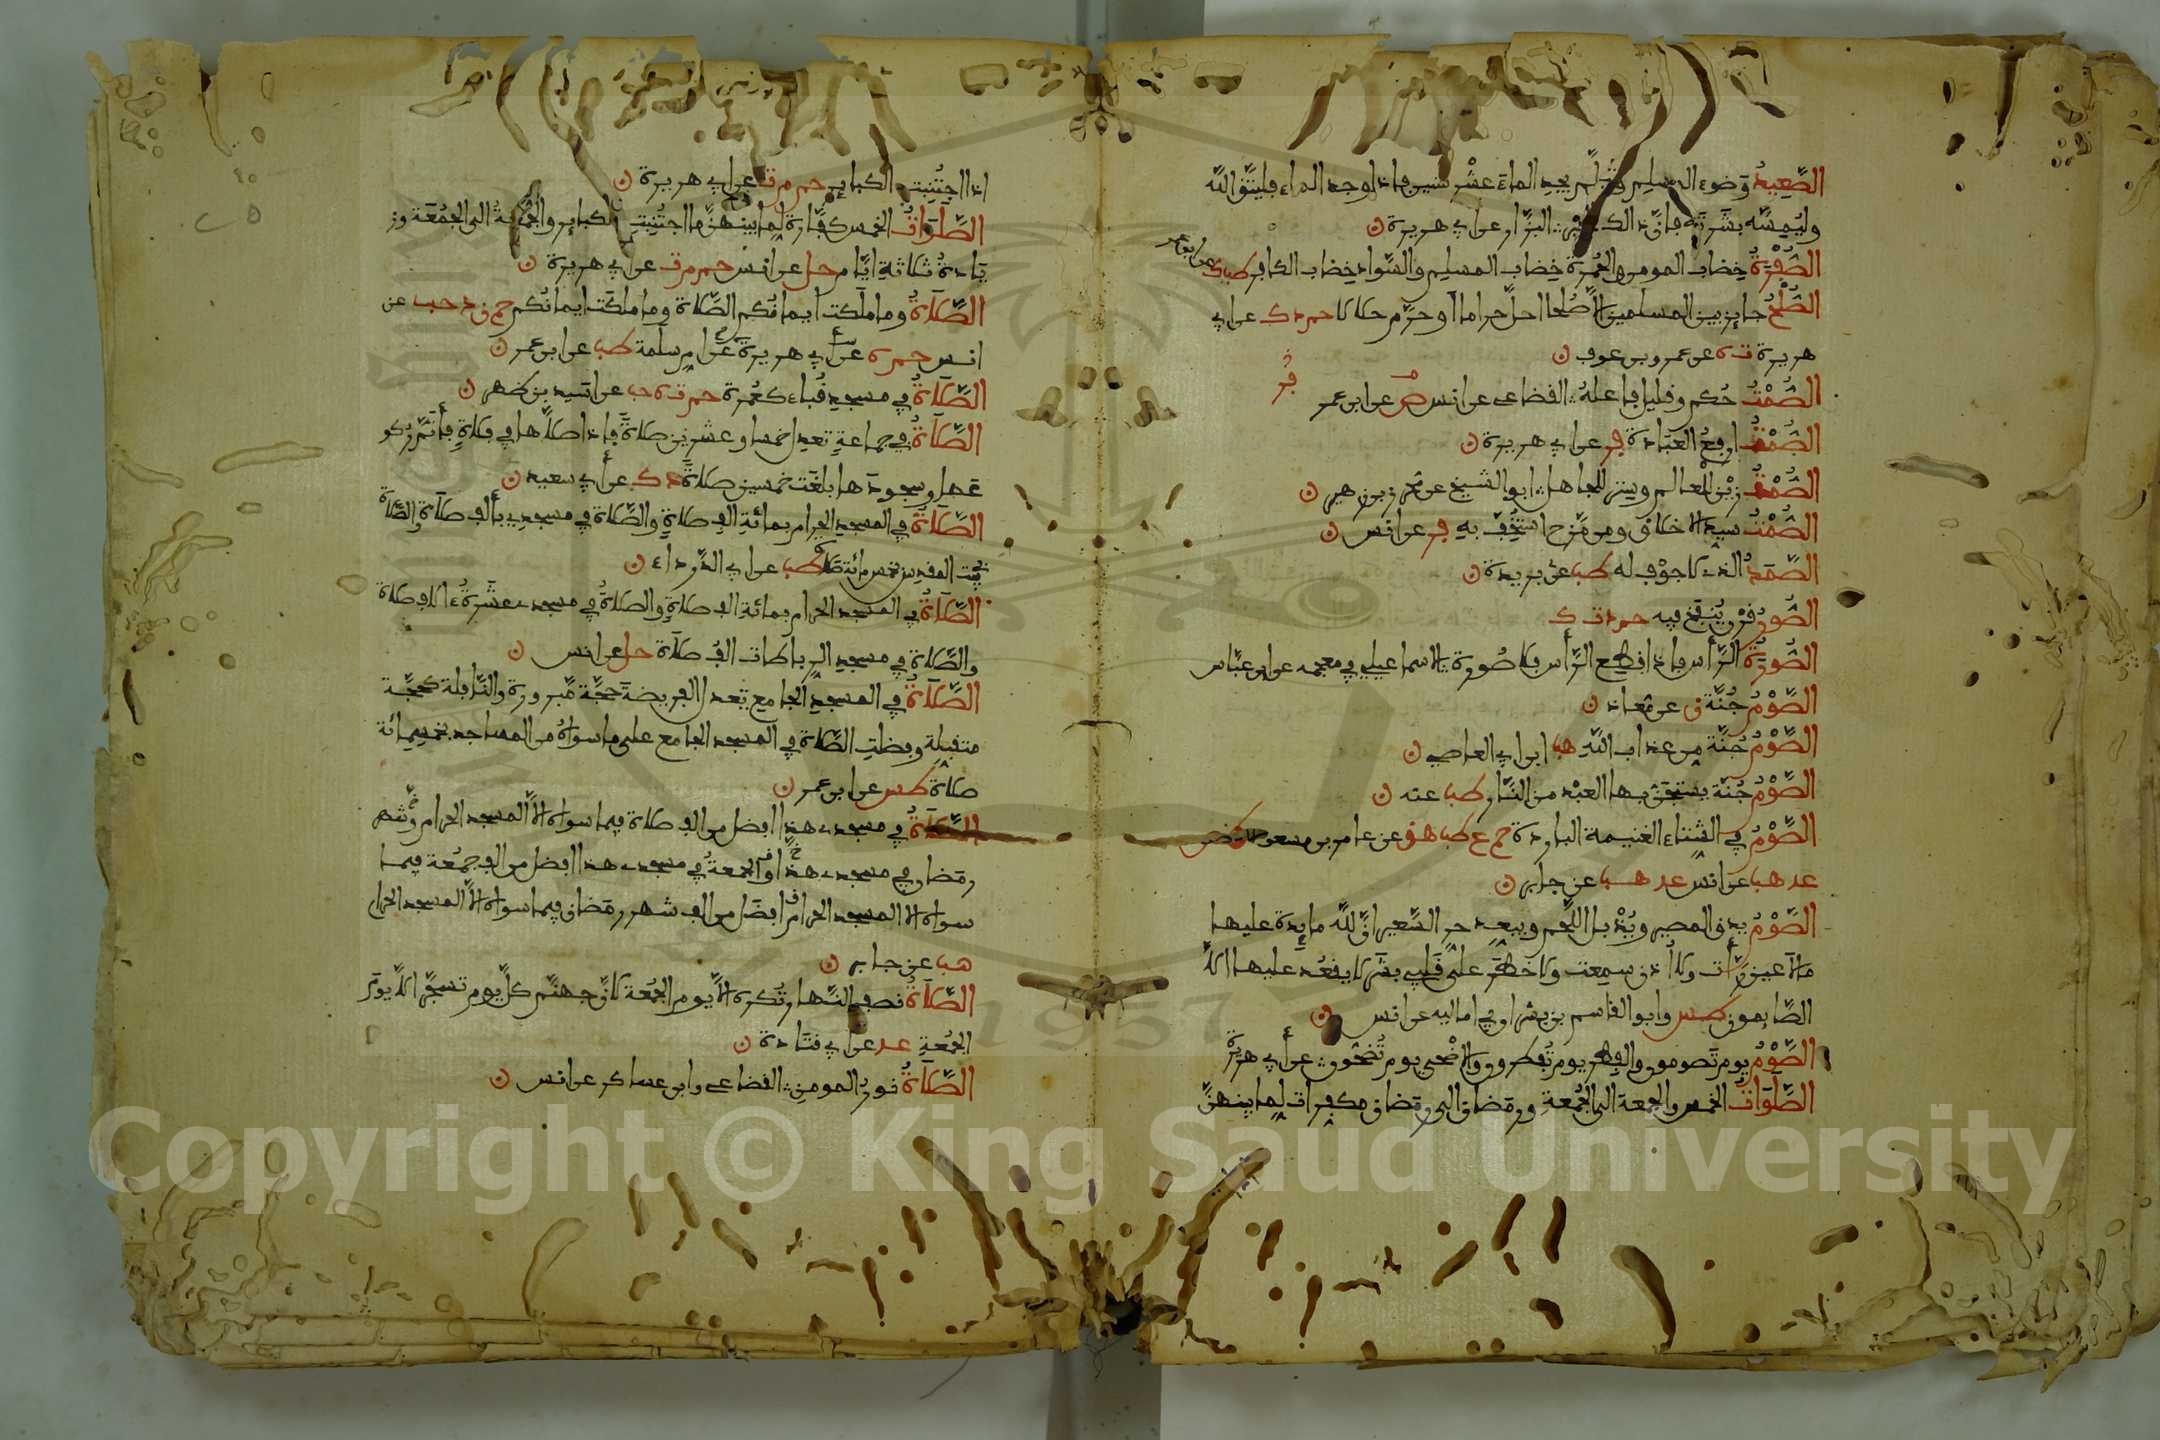 الصَّعِيدُ وَضوء المسلِم وَإن لَّم يجِدِ الماءَ عَشْر سنين فإذا وجد الماء فليتَّقِ اللَّه
وليُمِسَّه بشَرتَه فإنَّ ذلك خَيْر البزَّار عن أبي هريرة ن
الصُّفْرَةُ خِضاب المومن والحُمرَة خِضاب المسلِم والسَّواد خِضاب الكافِر طب ك عن ابن عمر
الصُّلحُ جايِز بين المسلمين إلاَّ صُلحا احلّ حراما أو حرَّم حلالا حم د ك عن أبي
هريرة ت ه عن عمرو بن عوف ن
الصُّمْتُ حُكم وقليل فاعلهُ القضاعي عن انس فر عن ابن عمر
الصُّمْتُ ارفعُ العبَادة فر عن أبي هريرة ن
الصُّمْتُ زيْن للعالم وسِتر للجاهل ابو الشيخ عن محرز بن زهير ن
الصُّمْتُ سيد الاخلاق ومن مَزح استُخِفّ بهِ فر عن انس ن
الصَّمَدُ الذي لا جوْف له طب عن بريدة ن
الصُّورُ قرْن يُنفَخ فيه حم د ت ك
الصُّورَةُ الرَّأس فإذا قطِع الرَّأس فلا صُورة الاسماعيلي في معجمه عن ابن عبَّاس
الصَّوْمُ جُنَّة ن عن مُعاذ ن
الصَّوْمُ جُنّة مِن عذاب اللَّهِ هب ابن أبي العاصي ن
الصَّوْمُ جُنّة يستجنّ بها العبْد من النَّار طب عنه ن
الصَّوْمُ في الشِّتاء الغنيمة الباردة حم ع طب هق عن عامر بن مسعود طص
عد هب عن انس عد هب عن جابر ن
الصَّوْمُ يدق المصير ويُذْبل اللَّحم ويبعِد حرِ السَّعير انَّ للَّه مايِدة عليها
ما لا عين رَأت ولا أُذن سمِعت ولا خطَر على قَلبِ بشَر لا يقعُد عليها الاَّ
الصَّايِمون طس وابو القاسم بن بشران في اماليه عن انس ن
الصَّوْمُ يوم تَصومون والفِطر يوم تُفطرون والاضْحى يوم تُضحّون ت عن أبي هريرة
الصَّلَوَاتُ الخمس والجمعة الى الجُمُعةِ ورمَضان الى رمَضان مكفِرات لِما بينهنَّ
اذا اجتُنِبتِ الكبايِر حم م ت عن أبي هريرة ن
الصَّلَوَاتُ الخمس كفَّارة لِما بينهنَّ ما اجتُنِبتِ الكبايِر والجُمُعةُ الى الجمُعَة وز
يَادةُ ثلاثةِ ايَّام حل عن انس حم م ت عن أبي هريرة ن
الصَّلَاةُ وما ملَكت أيمانُكم الصَّلاة وما ملكَت ايمانُكم حم ن د حب عن
انس حم ه عن أبي هريرة عن ام سلَمة طب عن ابن عمر ن
الصَّلَاةُ في مسجدِ قُباء كعُمرة حم ت ه حب عن اسَيد بن ظهير ن
الصَّلَاةُ في جماعةٍ تعدِل خمسا وعشرين صلاةً فإذا صلاَّها في فلاةٍ فأتمَّ رُكو
عَها وسجودَها بلغَت خمسين صلاةً د ك عن أبي سعيد ن
الصَّلَاةُ في المسجدِ الحرام بمائةِ الفِ صلاةٍ والصَّلاة في مسجدِي بألفِ صلاَة والصَّلاَة
في بيت المقدِس بخمس مائة صلاة طب عن أبي الدَّرداء ن
الصَّلَاةُ في المسجد الحرام بمائةِ الف صلاةٍ والصلاةُ في مسجدي عَشَرةُ ءالاف صلاة
والصَّلاة في مسجدِ الرِباطات الفُ صلاَة حل عن انس ن
الصَّلَاةُ في المسجدِ الجامع تعدل الفريضةَ حجَّة مَّبرورة والنَّافِلة كحجَّة
متقبلة وفضلت الصَّلاة في المسجد الجامع على ما سواهُ من المساجد بخمسِمائة
صلاة طس عن ابن عمر ن
الصَّلَاةُ في مسجدي هذا افضل من الف صلاة فيما سواه الاَّ المسجد الحرام وشهر
رمَضان في مسجدي هذا والجمعةُ في مسجدي هذا افضل من الف جمُعة فِيما
سواه الا المسجد الحرام افضَل من الف شهر رمَضان فيما سواه الاَّ المسجد الحرام
هب عن جابر ن
الصَّلَاةُ نصف النَّهار تُكره الاَّ يوم الجُمُعة لانَّ جهنَّم كلَّ يوم تسجَّر الاَّ يومَ
الجُمُعةِ عد عن أبي قتَادة ن
الصَّلَاةُ نورُ المومن القضاعي وابن عساكر عن انس ن
Copyright © King Saud University
1957